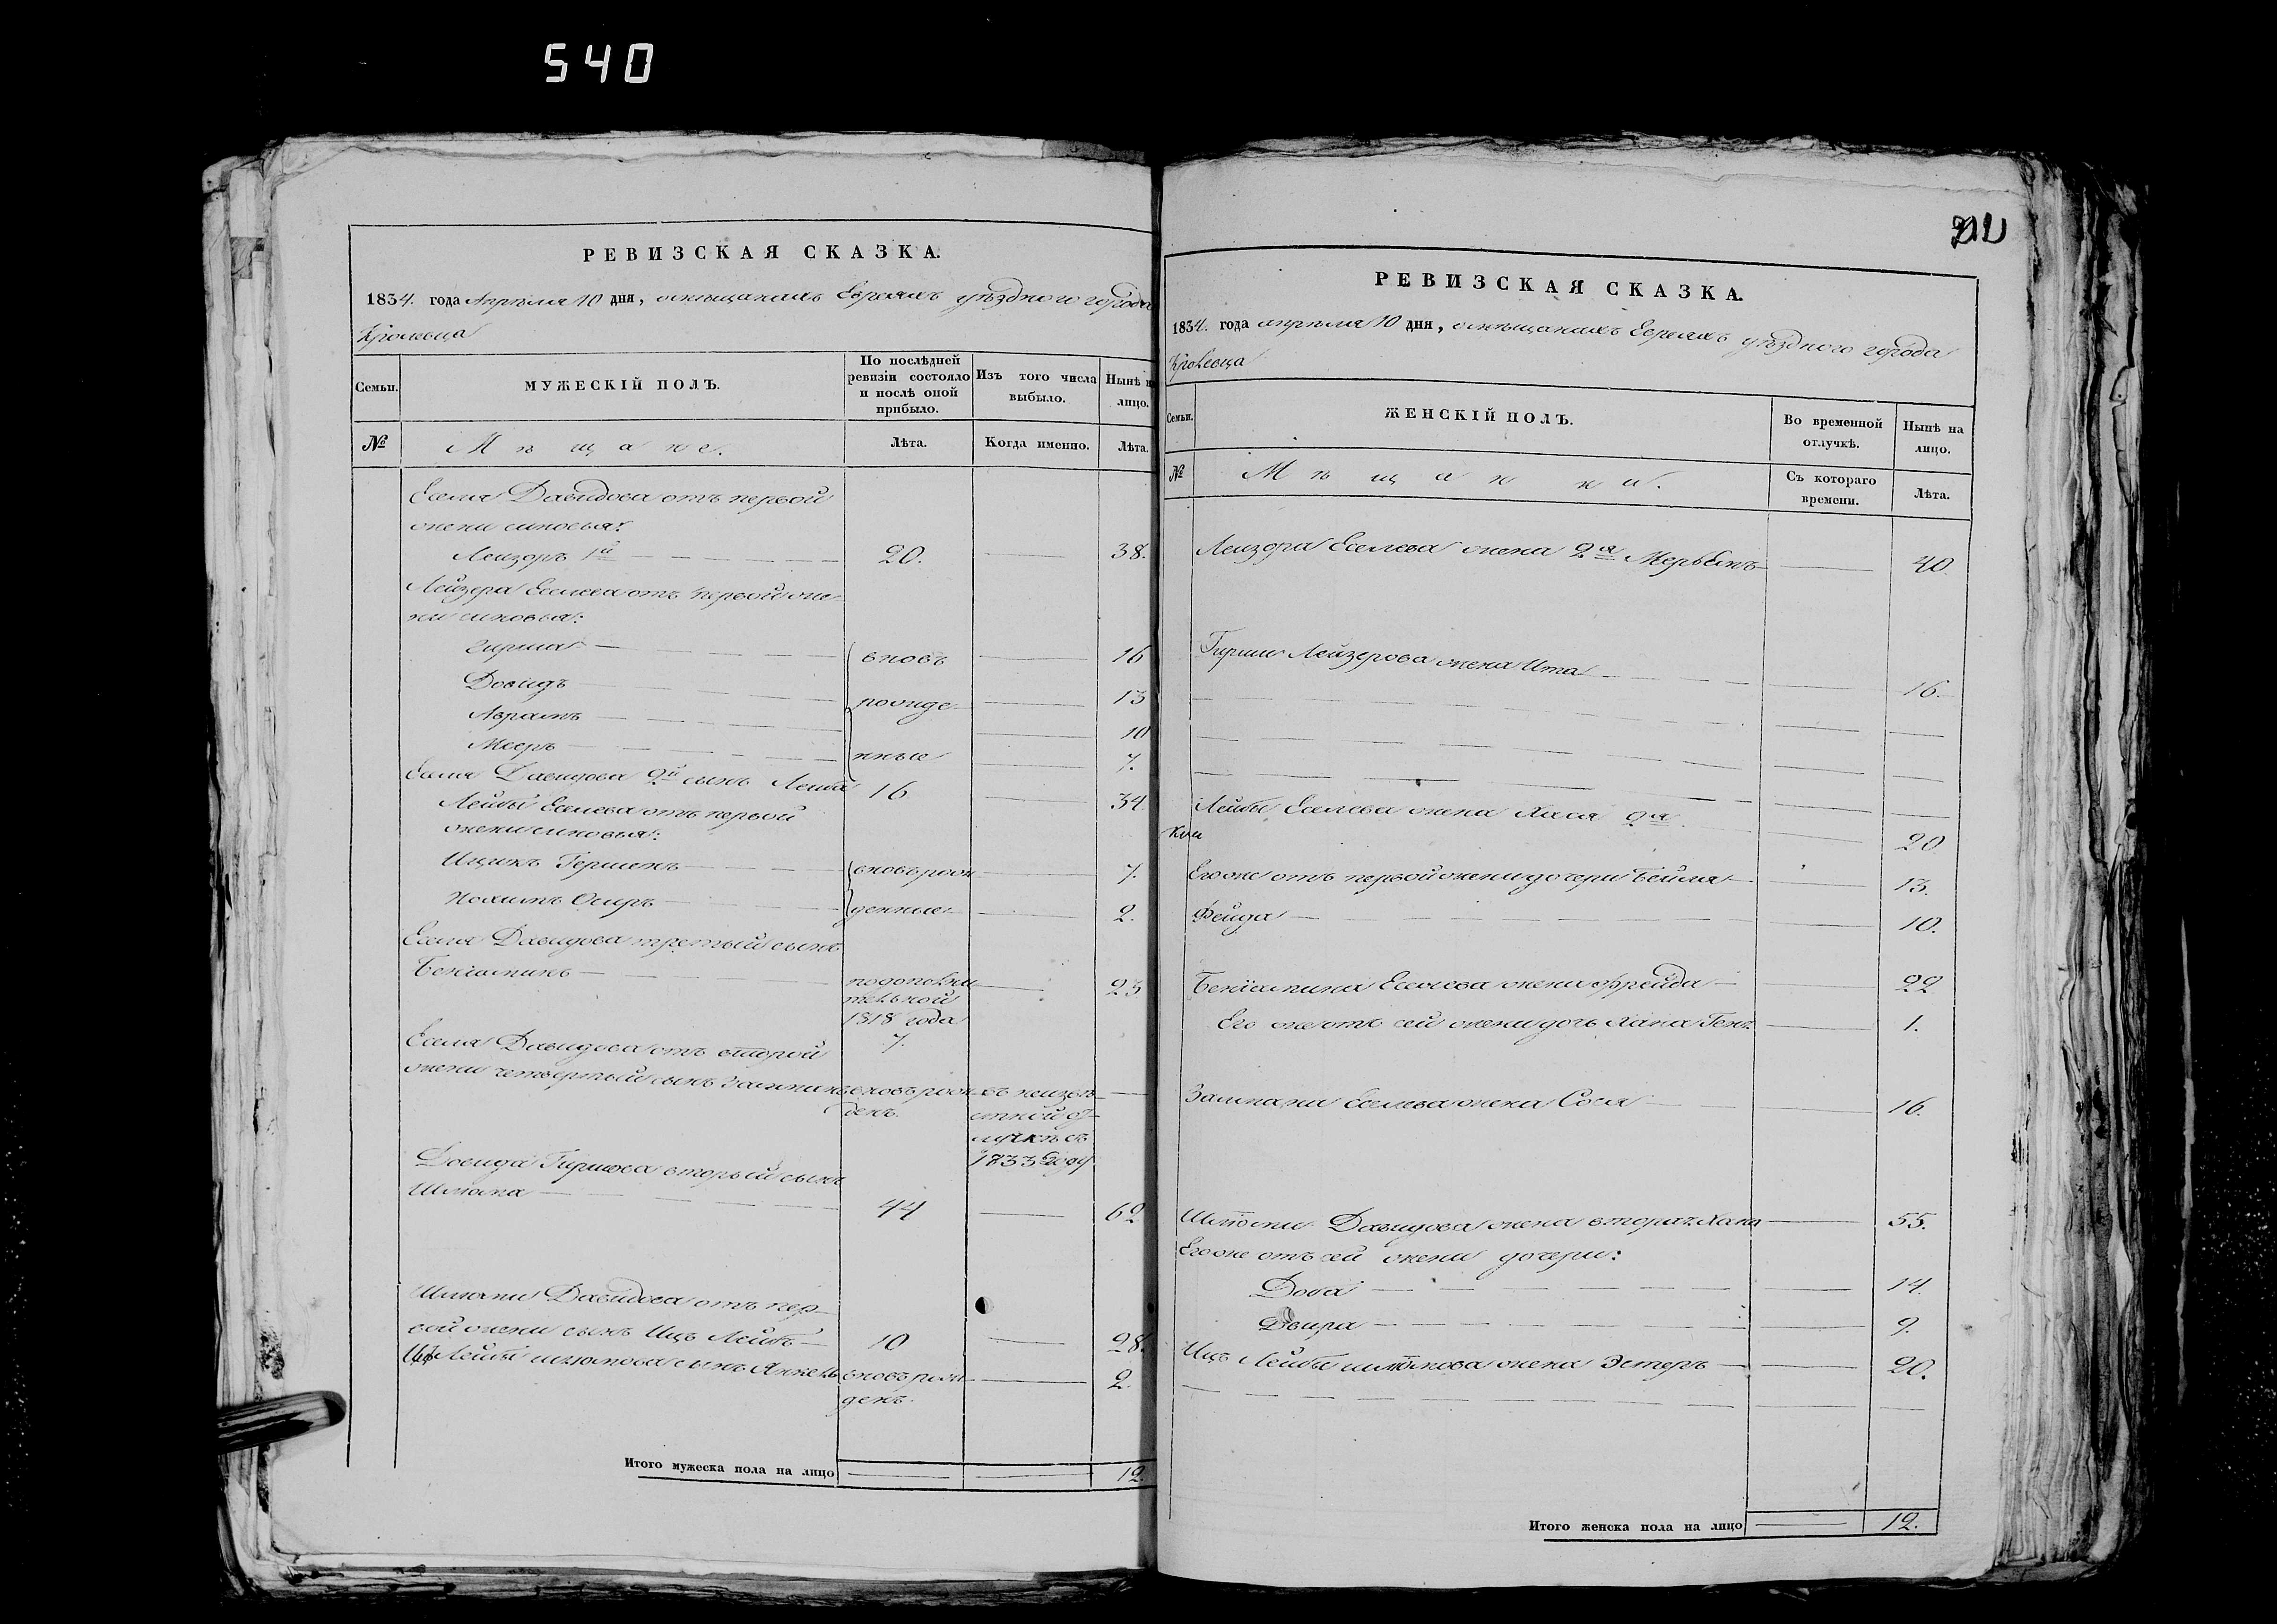 540
РЕВИЗСКАЯ СКАЗКА.
1834. года Апреля 10 дня, о мещанахъ Евреяхъ уѣзднаго города
Кролевца
Семьи.
МУЖЕСКІЙ ПОЛЪ.
По послѣдней ревизіи состояло и послѣ оной прибыло.
Изъ того числа выбыло.
Нынѣ на лицо.
№
Мѣщане.
Лѣта.
Когда именно.
Лѣта.
Еселя Давидова отъ первой
жены сыновья:
Лейзоръ 1й 20. 38.
Лейзера Еселева отъ первой же-
ны сыновья:
Гирша вновь 16
Довидъ рожде- 13
Аврамъ 10
Мееръ нные 7.
Еселя Давидова 2й сынъ Лейба 16 34
Лейбы Еселева отъ первой
жены сыновья:
Ицикъ Гершенъ вновь рож 7.
Нохимъ Осиръ денные 2.
Еселя Давидова третьий сынъ
Бенiаминъ по дополни 25
тельной
1818 года
7.
Еселя Давидова отъ второй
жены четвертый сынъ Залманъ вновь рож въ неизвѣ
денъ. стной от-
лучкѣ съ
1833 году
Довида Гиршова вторый сынъ
Шлюма 44 62
Шлюмы Давидова отъ пер-
вой жены сынъ Ицъ Лейбъ 10 28.
Ицъ Лейбы Шлюмова сынъ Янкель вновь рож 2.
денъ.
Итого мужеска пола на лицо 12.
РЕВИЗСКАЯ СКАЗКА.
1834. года апреля 10 дня, о мещанахъ Евреяхъ уѣзднаго города
Кролевца
Семьи.
ЖЕНСКІЙ ПОЛЪ.
Во временной отлучкѣ.
Нынѣ на лицо.
№
Мѣщанки.
Съ котораго времени.
Лѣта.
Лейзора Еселева жена 2я 40
Гирши Лейзерова жена Ита 16.
Лейбы Еселева жена Хася 2я 20
Его же отъ первой жены дочери Бейля 13.
Фейда 10.
Бенiамина Еселева жена Фрейда 22
Его же отъ сей жены дочь Хана Ген. 1.
Залмана Еселева жена Сося 16.
Шлюмы Давидова жена вторая Хана 55.
Его же отъ сей жены дочери:
Доба 14.
Двира 9.
Ицъ Лейбы Шлюмова жена Эстеръ 20.
Итого женска пола на лицо 12.